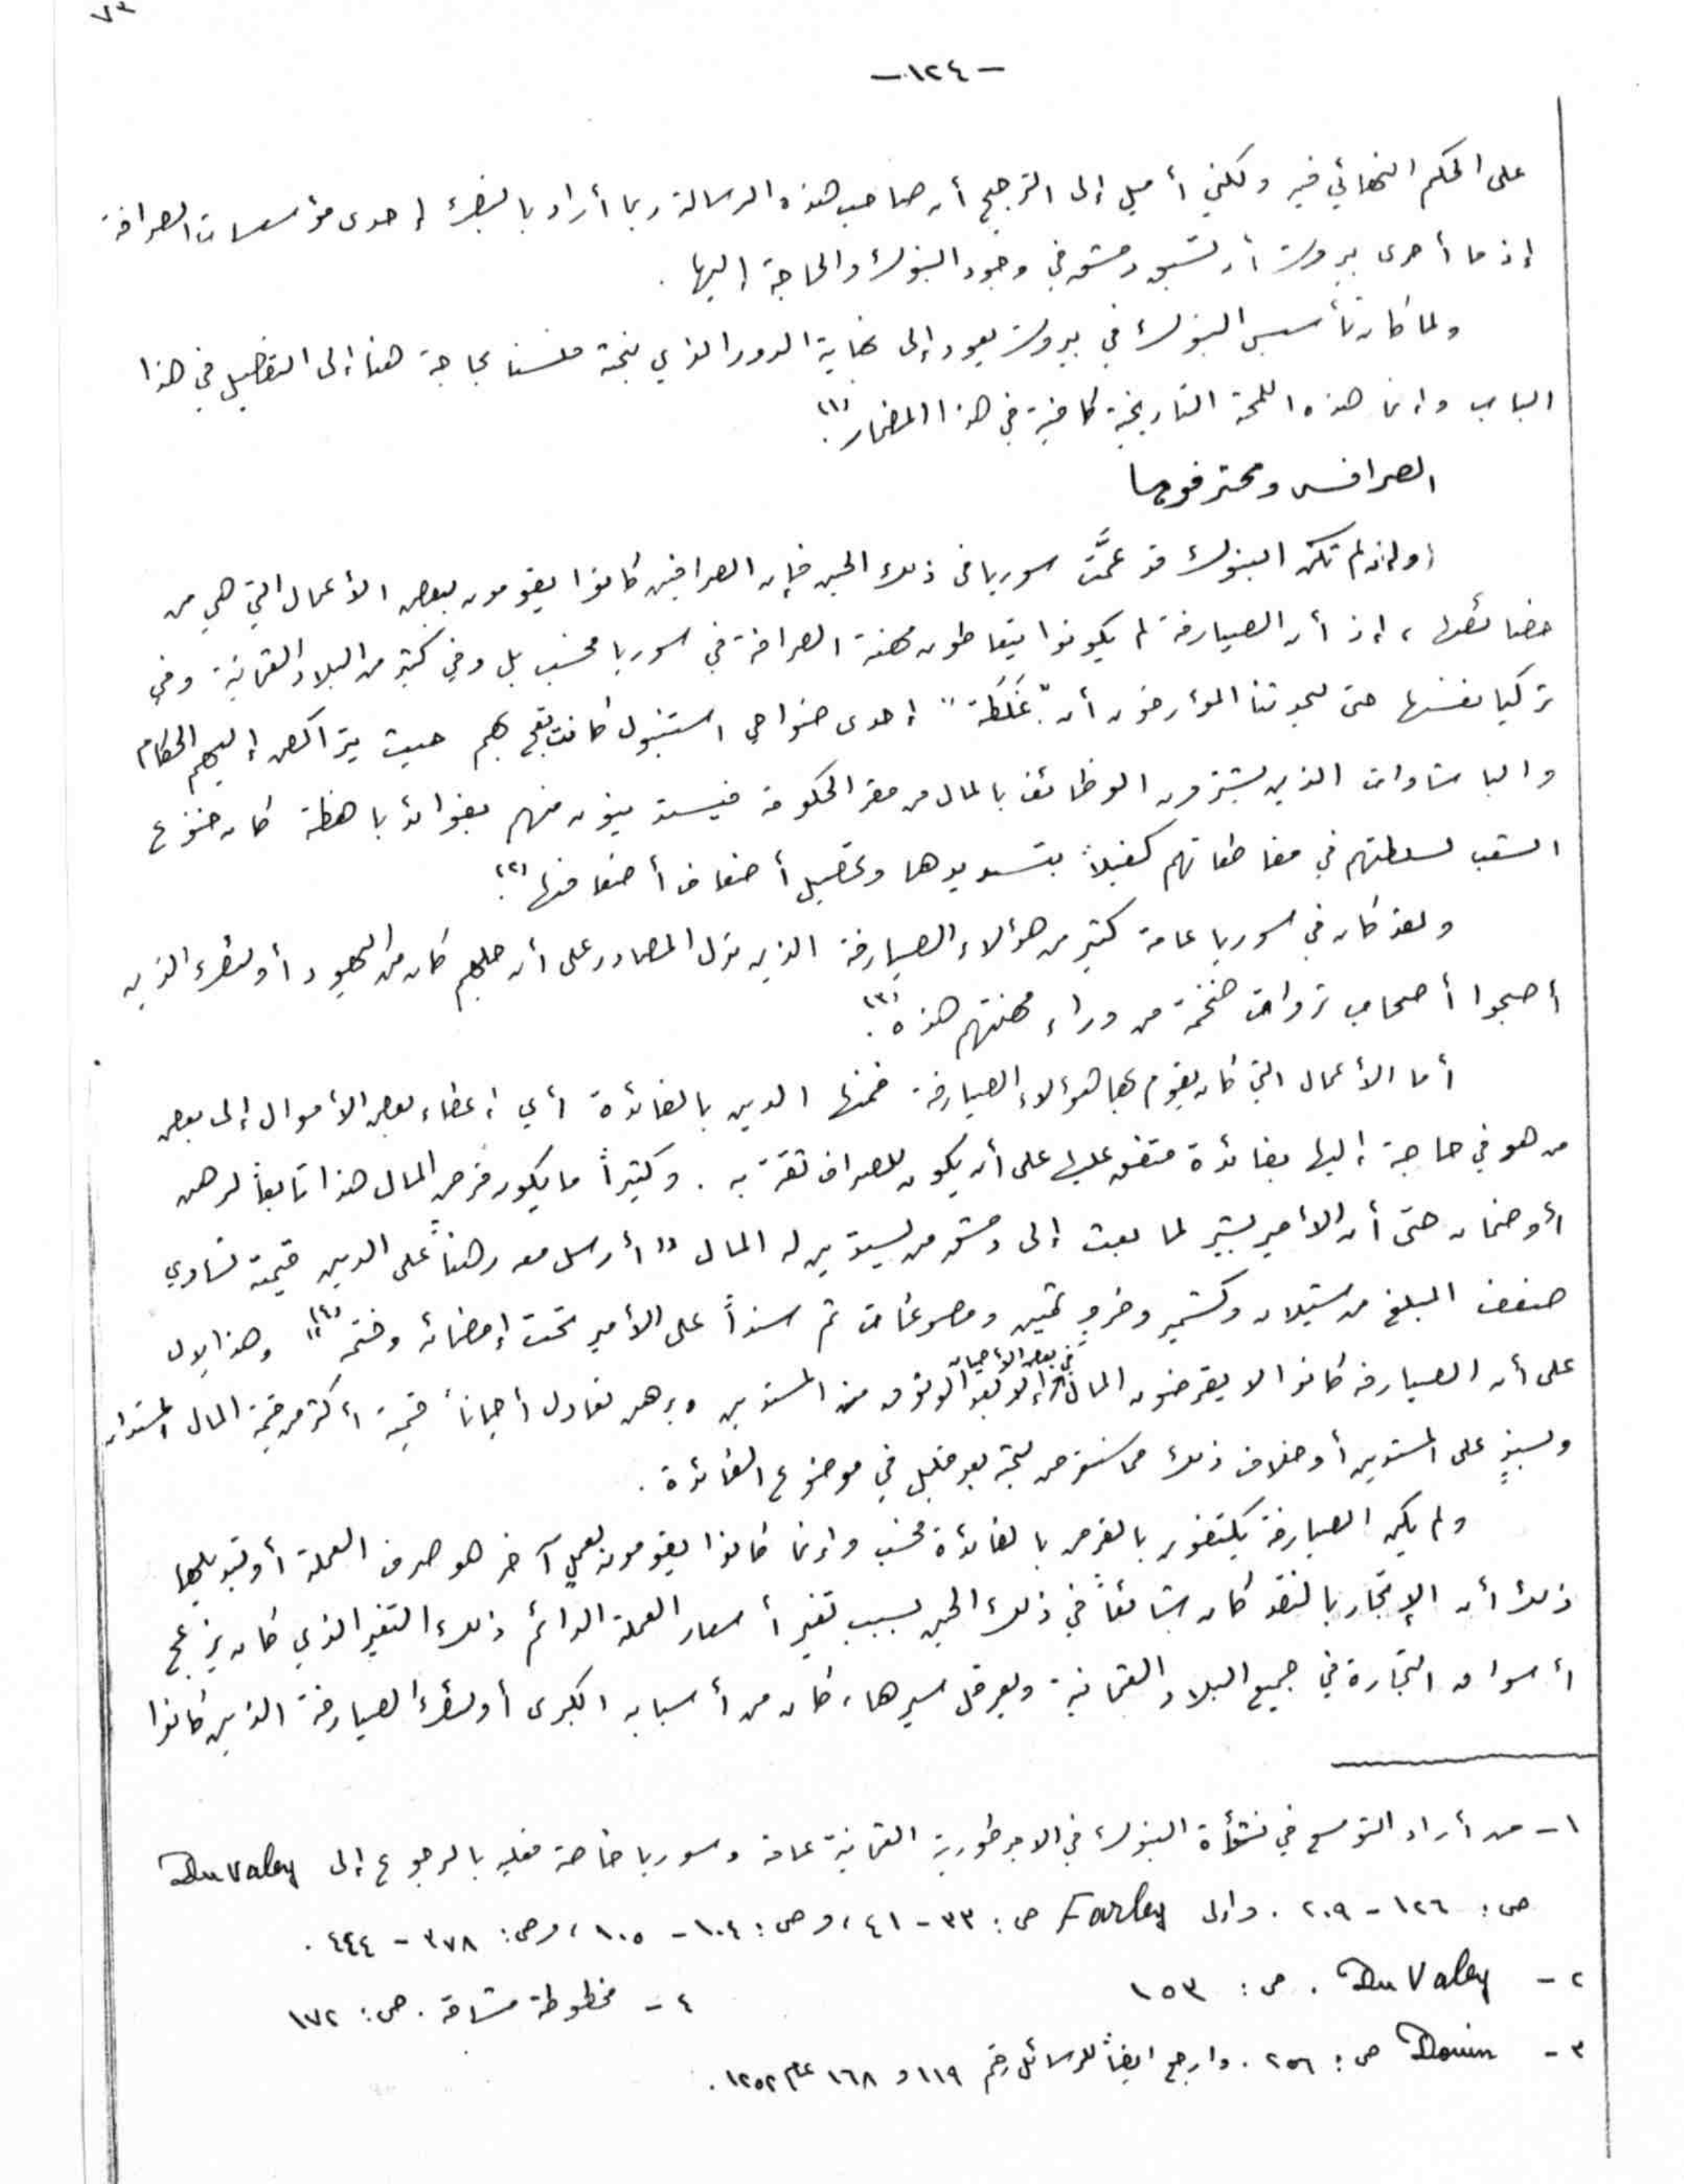 ٧٣
-١٢٤-
على الحكم النهائي فيه ولكني أميل إلى الترجيح أن صاحب هذه الرسالة ربما أراد بالبنك إحدى مؤسسات الصرافة
إذ ما أحرى بيروت أن تسبق دمشق في وجود البنوك والحاجة إليها .
ولما كان تأسيس البنوك في بيروت يعود إلى نهاية الدور الذي نبحثه فلسنا بحاجة هنا إلى التفصيل في هذا
الباب وإنما هذه اللمحة التاريخية كافية في هذا المضمار (١).
الصرافة ومحترفوها
ولئن لم تكن البنوك قد عمَّت سوريا في ذلك الحين فإن الصرافين كانوا يقومون ببعض الأعمال التي هي من
خصائصها ، إذ أن الصيارفة لم يكونوا يتعاطون مهنة الصرافة في سوريا فحسب بل وفي كثير من البلاد العثمانية وفي
تركيا نفسها حتى ليحدثنا المؤرخون أن "غَلَطَة" إحدى ضواحي استنبول كانت تعج بهم حيث يتراكض إليهم الحكام
والباشاوات الذين يشترون الوظائف بالمال من مقر الحكومة فيستدينون منهم بفوائد باهظة كان خنوع
الشعب لسلطتهم في مقاطعاتهم كفيلاً بتسديدها وتحصيل أضعاف أضعافها (٢).
ولقد كان في سوريا عامة كثير من هؤلاء الصيارفة الذين تدل المصادر على أن جلهم كان من اليهود أولئك الذين
أصبحوا أصحاب ثروات ضخمة من وراء مهنتهم هذه (٣).
أما الأعمال التي كان يقوم بها هؤلاء الصيارفة فمنها الدين بالفائدة أي إعطاء بعض الأموال إلى بعض
من هو في حاجة إليها بفائدة متفق عليها على أن يكون للصراف ثقة به . وكثيراً ما يكون قرض المال هذا تابعاً لرهن
أو ضمان حتى أن الأمير بشير لما بعث إلى دمشق من يستدين له المال " أرسل معه رهناً على الدين قيمة تساوي
ضعف المبلغ من ستيلان وكشمير وخرجٍ ثمين ومصوغات ثم سنداً على الأمير تحت إمضائه وختمه (٤)" وهذا يدل
على أن الصيارفة كانوا لا يقرضون المال في بعض الأحيان إلا بعد الوثوق من المستدين وبرهن تعادل أحياناً قيمته أكثر من قيمة المال المستدان
وبسندٍ على المستدين أو خلاف ذلك مما سنعرض لبحثه بعد قليل في موضوع الفائدة .
ولم يكن الصيارفة يكتفون بالقرض بالفائدة فحسب وإنما كانوا يقومون بعملٍ آخر هو صرف العملة أو تبديلها
ذلك أن الإتجار بالنقد كان شائعاً في ذلك الحين بسبب تغير أسعار العملة الدائم ذلك التغير الذي كان يزعج
أسواق التجارة في جميع البلاد العثمانية ويعرقل سيرها ، كان من أسبابه الكبرى أولئك الصيارفة الذين كانوا
١- من أراد التوسع في نشأة البنوك في الامبرطورية العثمانية عامة وسوريا خاصة فعليه بالرجوع إلى Du Valay
ص : ١٢٦ - ٢٠٩ . وإلى Farley ص : ٣٣ - ٤١ ، وص : ١٠٤ - ١٠٥ ، وص : ٣٧٨ - ٤٤٤ .
٢- Du Valay . ص : ١٥٣
٤- مخطوطة مشاقة . ص : ١٧٢
٣- Douin ص : ٢٥٦ . وارجع ايضاً للرسائل رقم ١١٩ و ١٦٨ عام ١٢٥٢ .